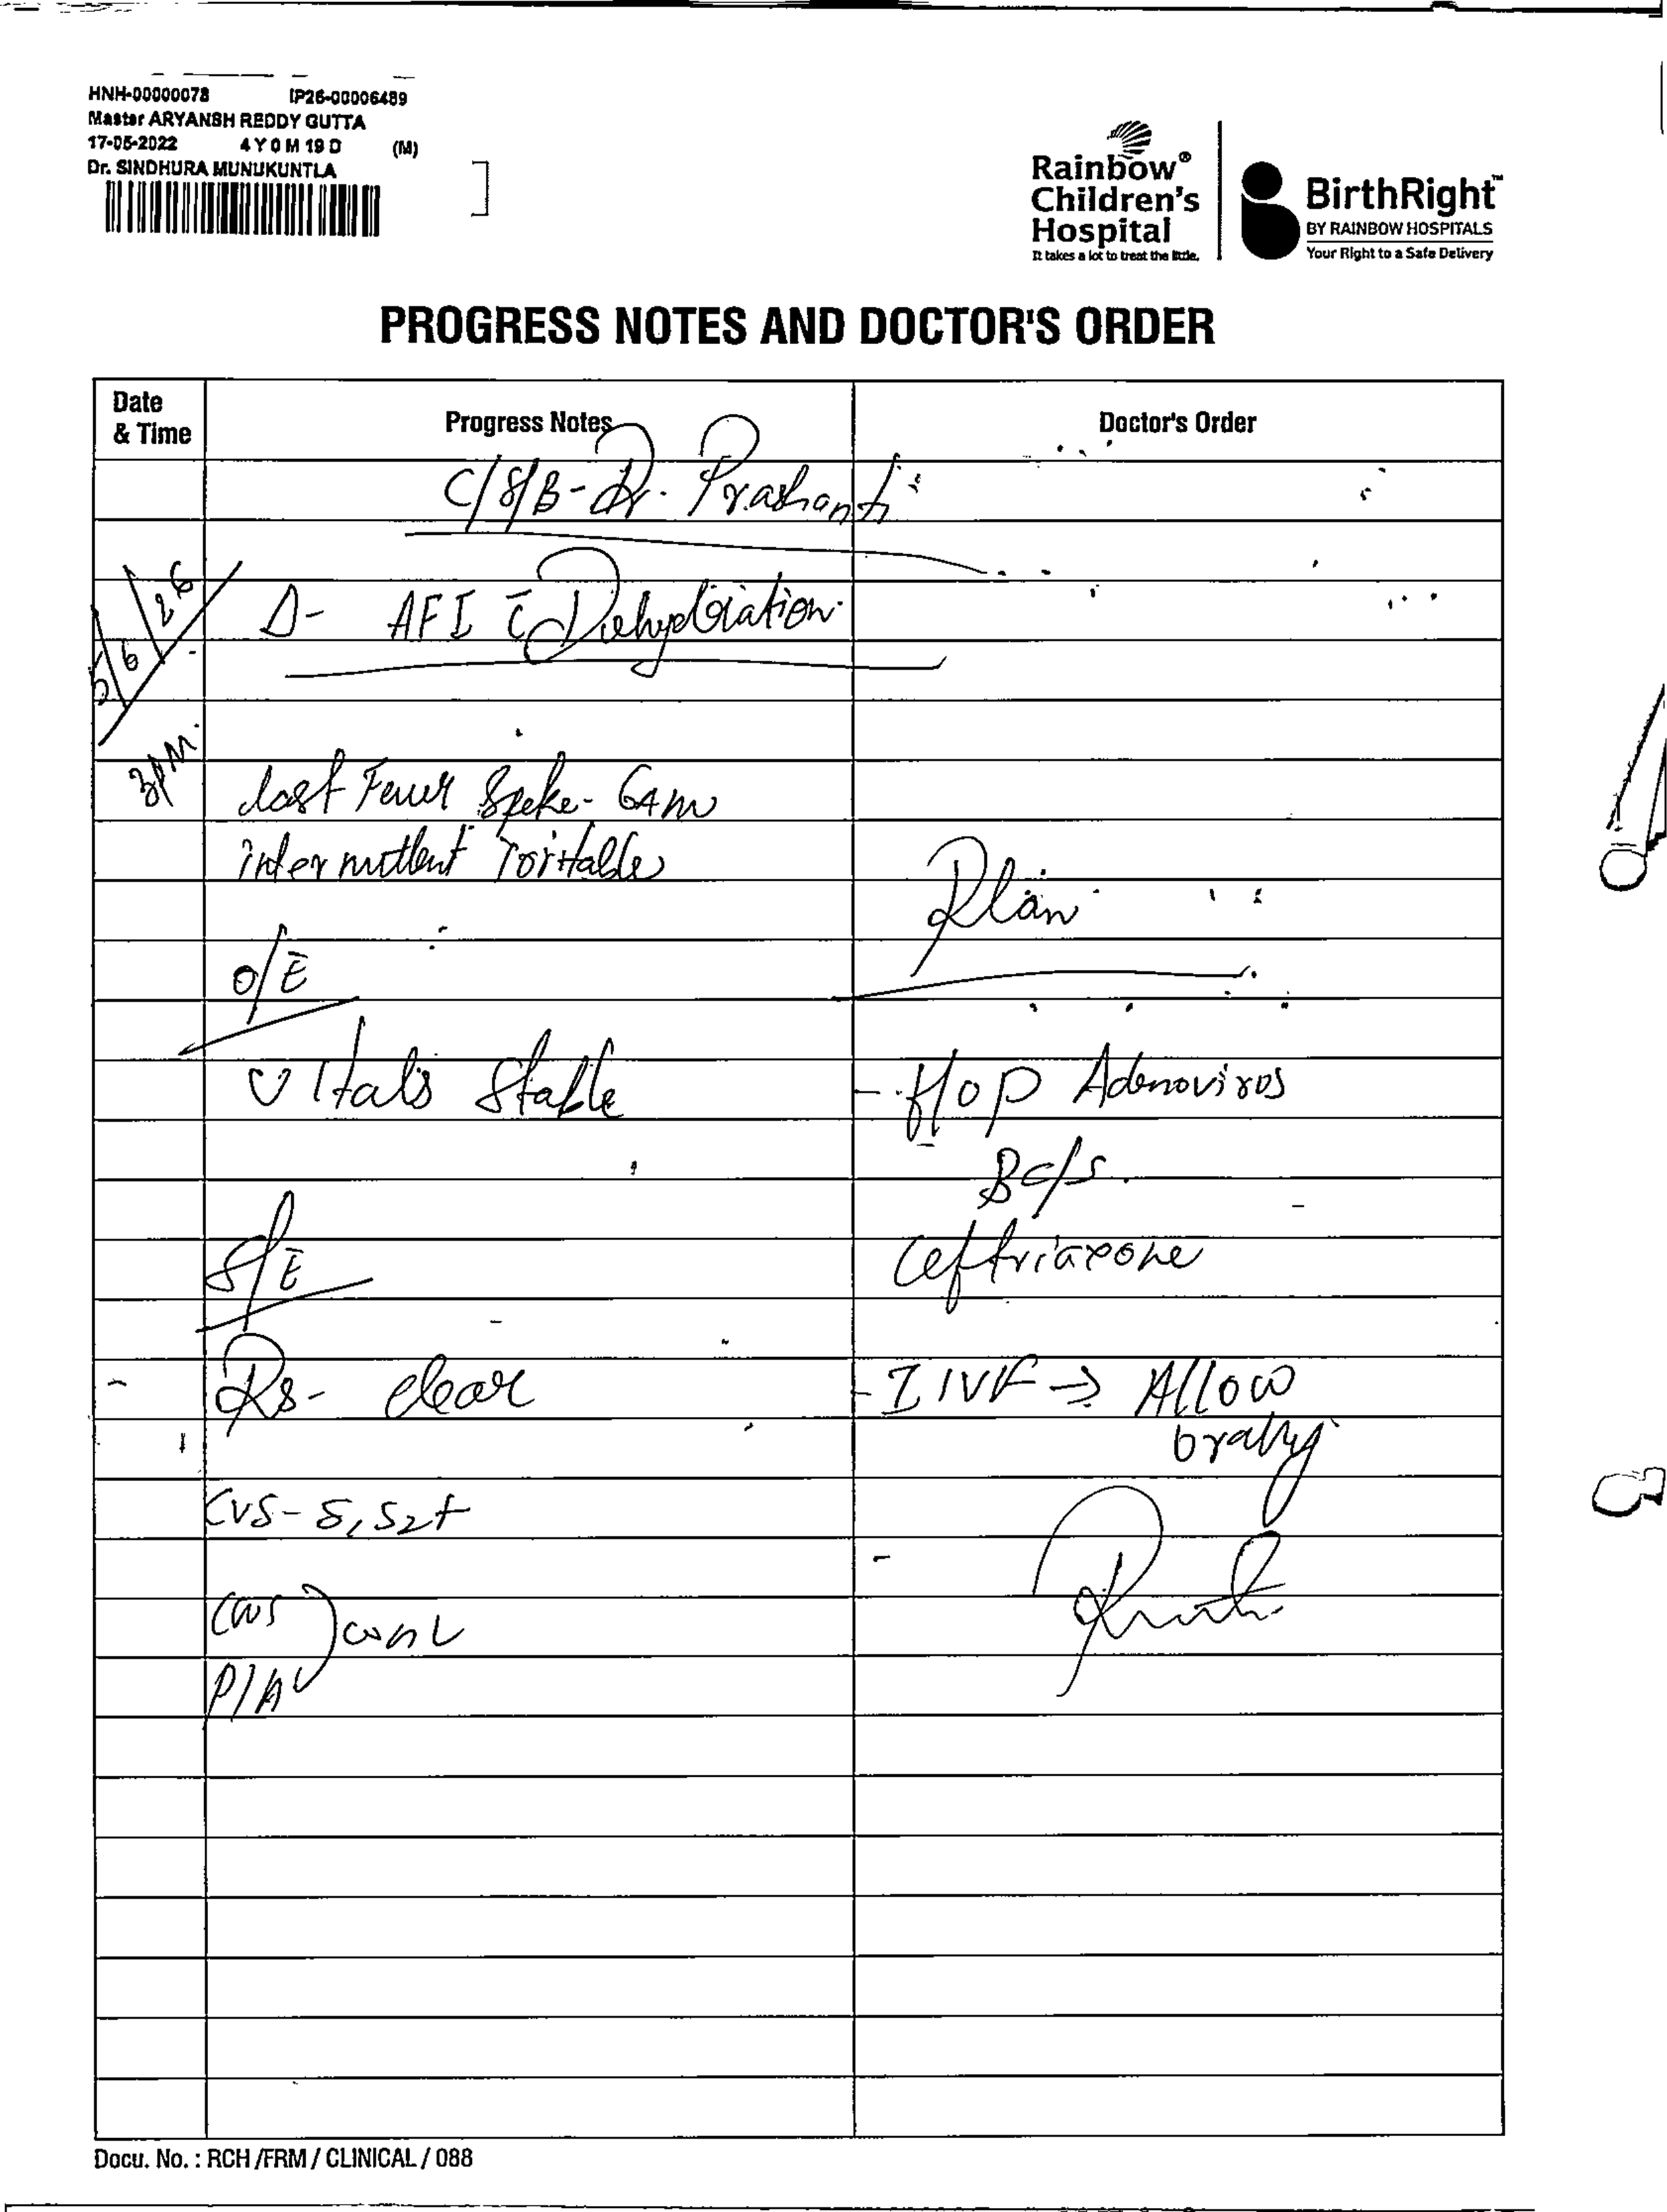 HNH-00000078 IP26-00006489
Master ARYANSH REDDY GUTTA
17-05-2022 4 Y 0 M 19 D (M)
Dr. SINDHURA MUNUKUNTLA
Rainbow®
Children's
Hospital
It takes a lot to treat the little.
BirthRight™
BY RAINBOW HOSPITALS
Your Right to a Safe Delivery
PROGRESS NOTES AND DOCTOR'S ORDER
Date
& Time
Progress Notes
Doctor's Order
C/S/B - Dr. Prashanti
5/6/26
Δ- AFI c̄ Dehydration
3PM.
last Fever Speke - 6Am
intermittent Irritable
Plan
O/E
Vitals Stable
- f/op Adenovirus
B c/s.
S/E
Ceftriaxone
Rs- clear
- IIVF → Allow
orally
CVS - S1S2+
CNS
P/A
Docu. No. : RCH /FRM / CLINICAL / 088